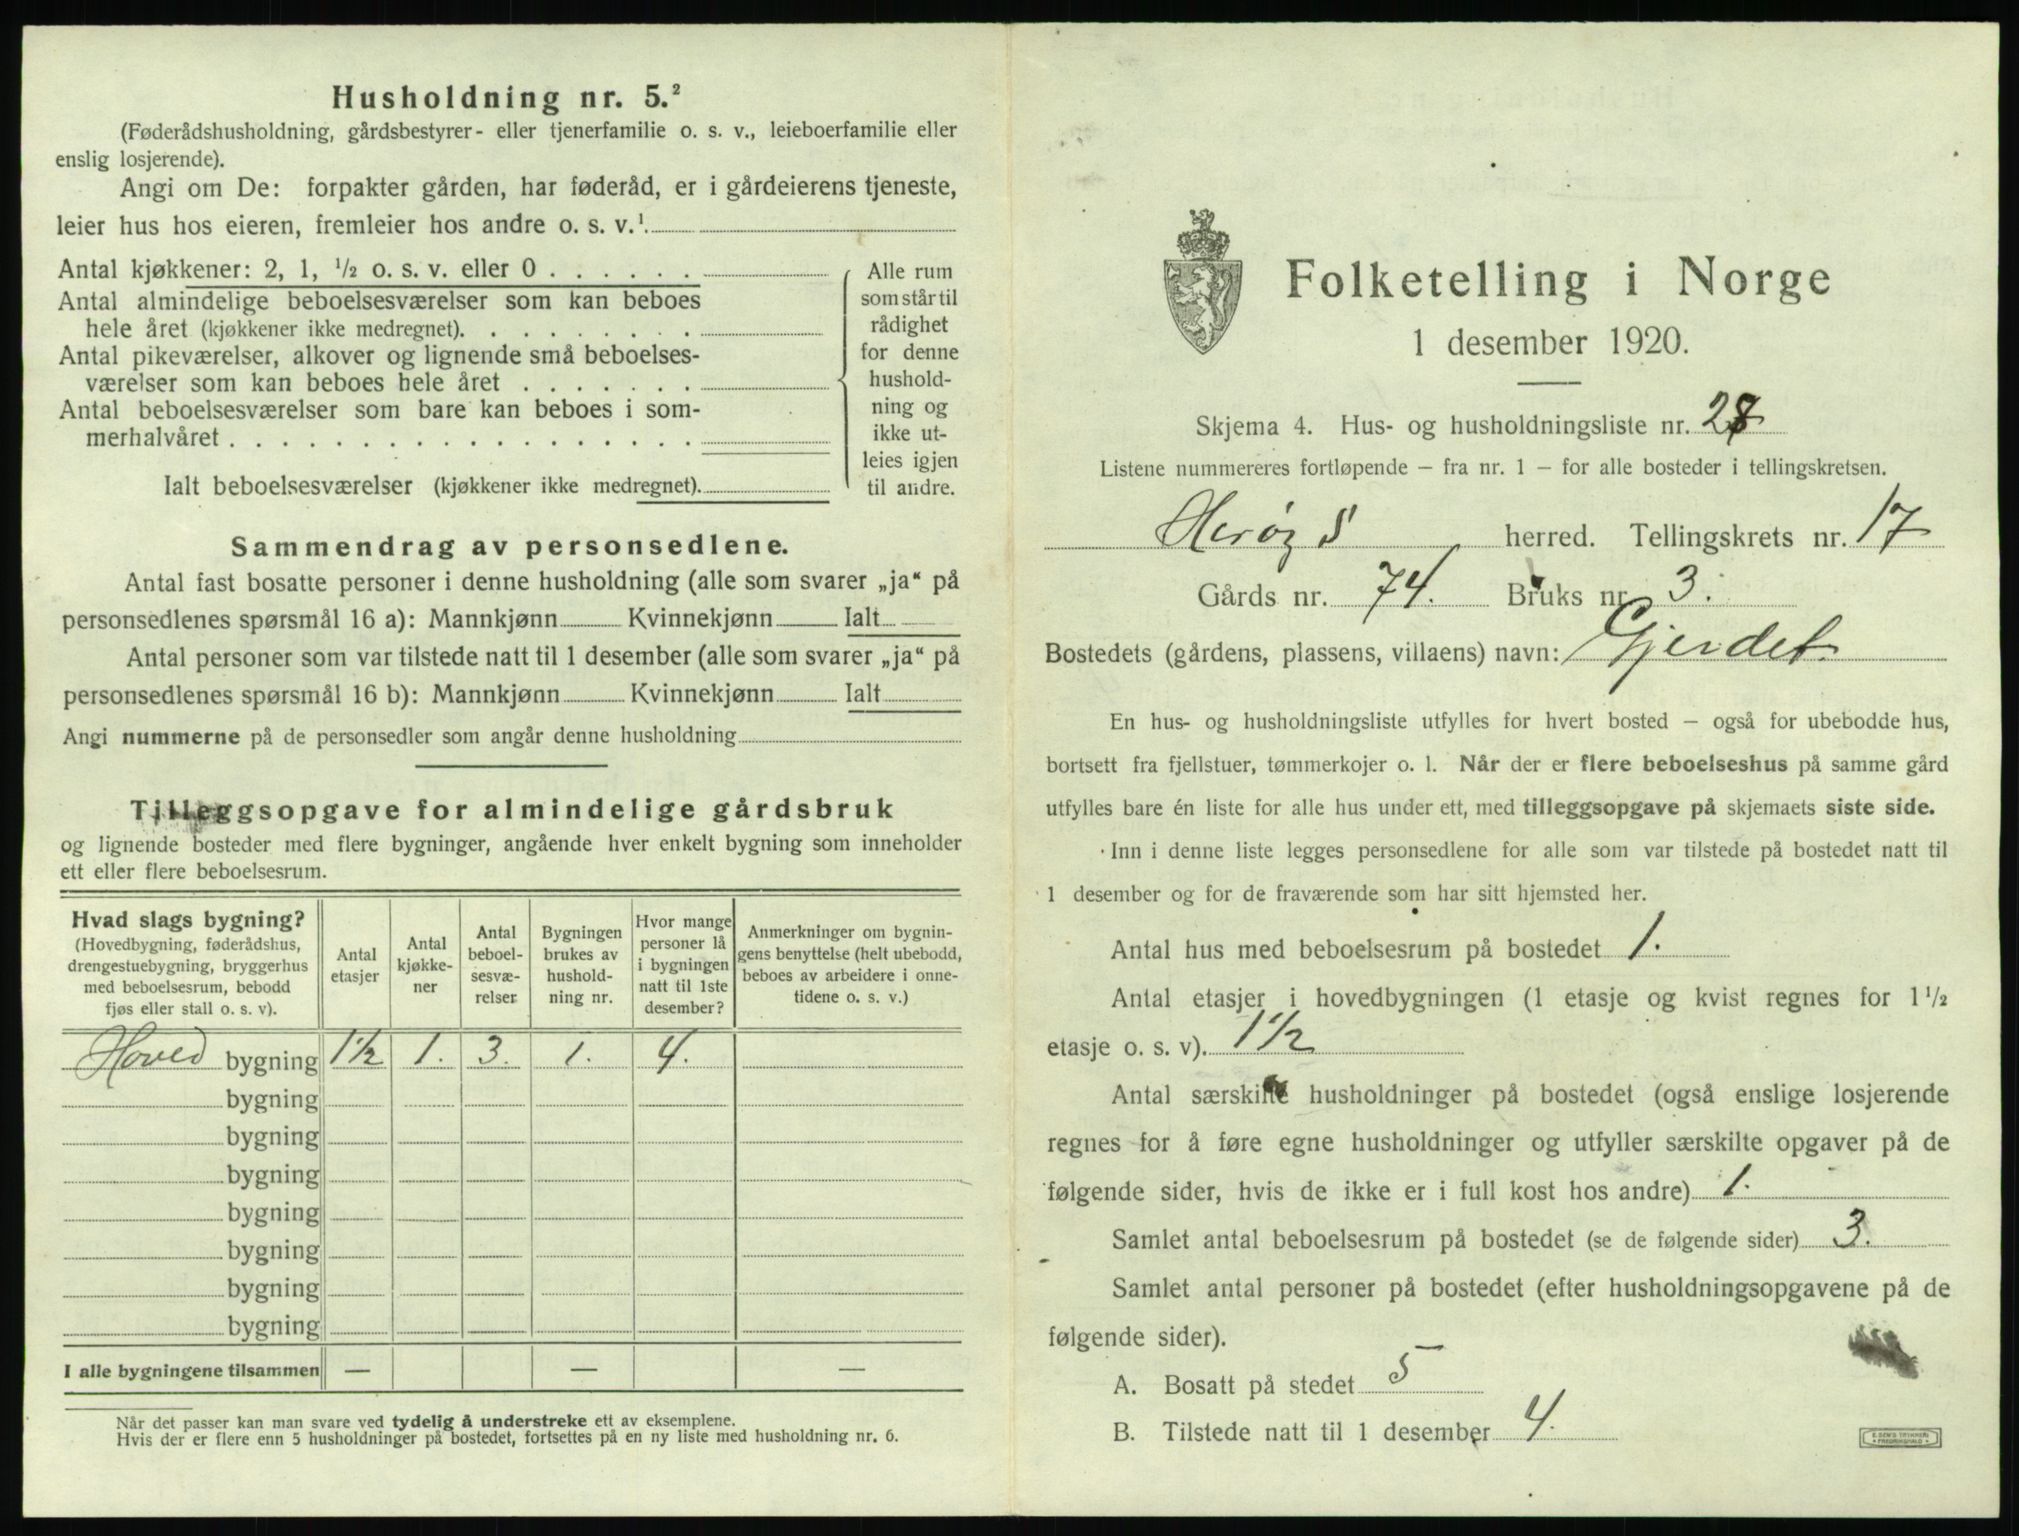 Husholdning nr. 5.²
(Føderådshusholdning, gårdsbestyrer- eller tjenerfamilie o. s. v., leieboerfamilie eller
enslig losjerende).
Angi om De: forpakter gården, har føderåd, er i gårdeierens tjeneste,
leier hus hos eieren, fremleier hos andre o. s. v.¹
Antal kjøkkener: 2, 1, ½ o. s. v. eller 0 . . . . . .
Antal almindelige beboelsesværelser som kan beboes
hele året (kjøkkener ikke medregnet). . . . . . . . .
Antal pikeværelser, alkover og lignende små beboelses-
værelser som kan beboes hele året . . . . . . .
Antal beboelsesværelser som bare kan beboes i som-
merhalvåret . . . . . . . . . . . . . . . . . .
Ialt beboelsesværelser (kjøkkener ikke medregnet).
Alle rum
som står til
rådighet
for denne
hushold-
ning og
ikke ut-
leies igjen
til andre.
Sammendrag av personsedlene.
Antal fast bosatte personer i denne husholdning (alle som svarer „ja“ på
personsedlenes spørsmål 16 a): Mannkjønn Kvinnekjønn Ialt
Antal personer som var tilstede natt til 1 desember (alle som svarer „ja“ på
personsedlenes spørsmål 16 b): Mannkjønn Kvinnekjønn Ialt
Angi nummerne på de personsedler som angår denne husholdning
Tilleggsopgave for almindelige gårdsbruk
og lignende bosteder med flere bygninger, angående hver enkelt bygning som inneholder
ett eller flere beboelsesrum.
Hvad slags bygning?
(Hovedbygning, føderådshus,
drengestuebygning, bryggerhus
med beboelsesrum, bebodd
fjøs eller stall o. s. v).
Antal
etasjer
Antal
kjøkke-
ner
Antal
beboel-
sesvæ-
relser
Bygningen
brukes av
hushold-
ning nr.
Hvor mange
personer lå
i bygningen
natt til 1ste
desember?
Anmerkninger om bygnin-
gens benyttelse (helt ubebodd,
beboes av arbeidere i onne-
tidene o. s. v.)
Hoved bygning 1½ 1. 3. 1. 4.
bygning
bygning
bygning
bygning
bygning
bygning
bygning
I alle bygningene tilsammen — — —
Når det passer kan man svare ved tydelig å understreke ett av eksemplene.
Hvis der er flere enn 5 husholdninger på bostedet, fortsettes på en ny liste med husholdning nr. 6.
Folketelling i Norge
1 desember 1920.
Skjema 4. Hus- og husholdningsliste nr. 2
Listene nummereres fortløpende – fra nr. 1 – for alle bosteder i tellingskretsen.
Herøy S herred. Tellingskrets nr. 17
Gårds nr. 74. Bruks nr. 3.
Bostedets (gårdens, plassens, villaens) navn: Gjerdet
En hus- og husholdningsliste utfylles for hvert bosted – også for ubebodde hus,
bortsett fra fjellstuer, tømmerkojer o. l. Når der er flere beboelseshus på samme gård
utfylles bare én liste for alle hus under ett, med tilleggsopgave på skjemaets siste side.
Inn i denne liste legges personsedlene for alle som var tilstede på bostedet natt til
1 desember og for de fraværende som har sitt hjemsted her.
Antal hus med beboelsesrum på bostedet 1.
Antal etasjer i hovedbygningen (1 etasje og kvist regnes for 1½
etasje o. s. v). 1½
Antal særskilte husholdninger på bostedet (også enslige losjerende
regnes for å føre egne husholdninger og utfyller særskilte opgaver på de
følgende sider, hvis de ikke er i full kost hos andre) 1.
Samlet antal beboelsesrum på bostedet (se de følgende sider) 3.
Samlet antal personer på bostedet (efter husholdningsopgavene på de
følgende sider).
A. Bosatt på stedet 5
B. Tilstede natt til 1 desember 4.